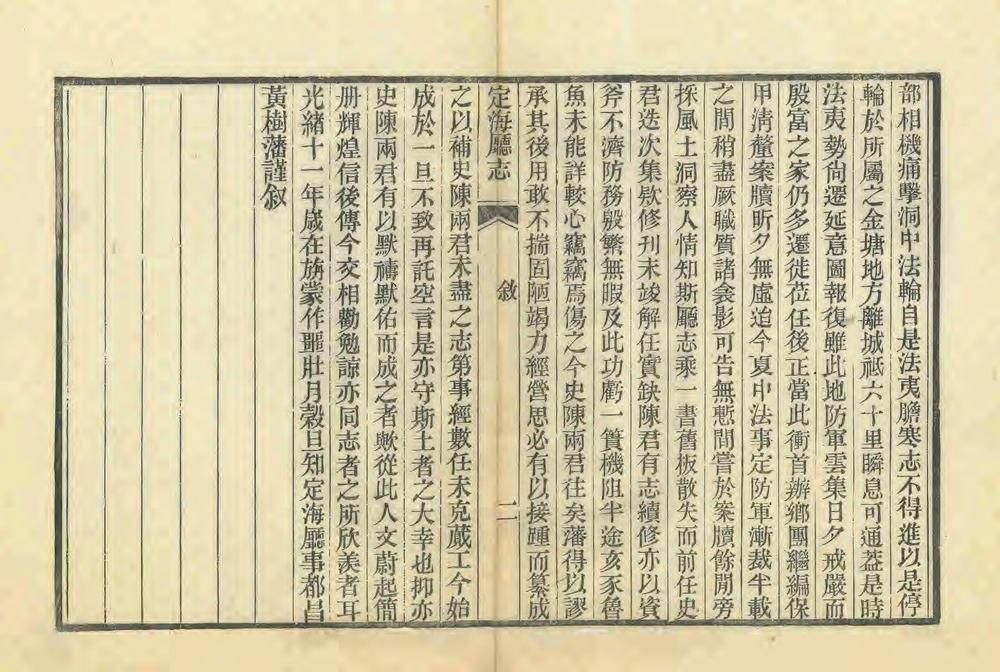 部相機痛擊洞中法輪自是法夷膽寒志不得進以是停
輪於所屬之金塘地方離城祗六十里瞬息可通蓋是時
法夷勢尚遷延意圖報復雖此地防軍雲集日夕戒嚴而
殷富之家仍多遷徙莅任後正當此衝首辦鄉團繼編保
甲清釐案牘昕夕無虛迨今夏中法事定防軍漸裁半載
之間稍盡厥職質諸衾影可告無慙間嘗於案牘餘閒旁
採風土洞察人情知斯廳志乘一書舊板散失而前任史
君迭次集欵修刊未竣解任實缺陳君有志續修亦以資
斧不濟防務殷繁無暇及此功虧一簣機阻半途亥豕魯
魚未能詳較心竊竊焉傷之今史陳兩君往矣藩得以謬
承其後用敢不揣固陋竭力經營思必有以接踵而纂成
定海廳志
敘
二
之以補史陳兩君未盡之志第事經數任未克蕆工今始
成於一旦不致再託空言是亦守斯土者之大幸也抑亦
史陳兩君有以默禱默佑而成之者歟從此人文蔚起簡
册輝煌信後傳今交相勸勉諒亦同志者之所欣羨者耳
光緒十一年歲在旃蒙作噩壯月穀旦知定海廳事都昌
黃樹藩謹叙